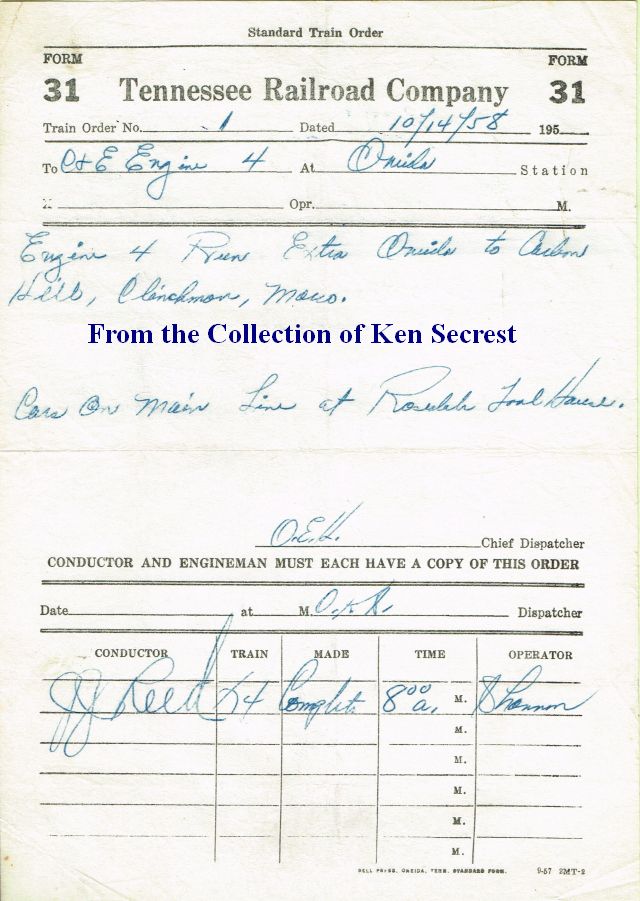 Standard Train Order
FORM FORM
31 Tennessee Railroad Company 31
Train Order No. 1 Dated 10/14/58 195
To C+E Engine 4 At Oneida Station
X Opr. M.
Engine 4 Run Extra Oneida to Carbon
Hill, Clinchmore,
From the Collection of Ken Secrest
Cars On Main Line at Rosedale Tool House.
O.E.H. Chief Dispatcher
CONDUCTOR AND ENGINEMAN MUST EACH HAVE A COPY OF THIS ORDER
Date at M. Dispatcher
CONDUCTOR TRAIN MADE TIME OPERATOR
JJ Reed X4 Complete 8 00 a. M. Shannon
M.
M.
M.
M.
M.
BELL PRESS, ONEIDA, TENN. STANDARD FORM. 9-57 2MT-2